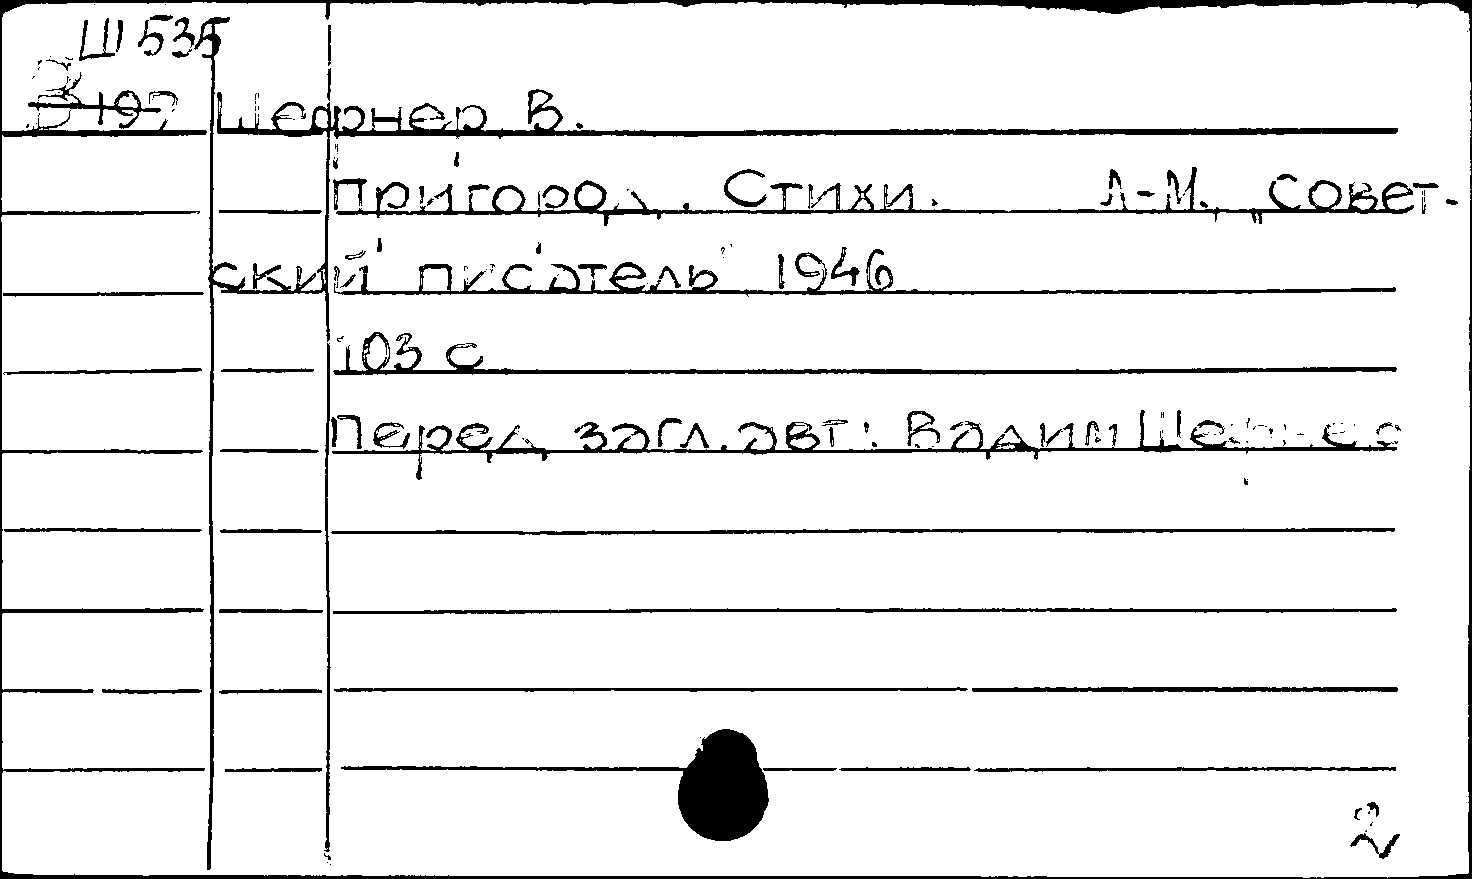 Ш 535
В 197 Шефнер, В.
Пригород. Стихи. Л-М., „Совет-
ский писатель" 1946.
103 с.
Перед загл. авт: Вадим Шефнер
2